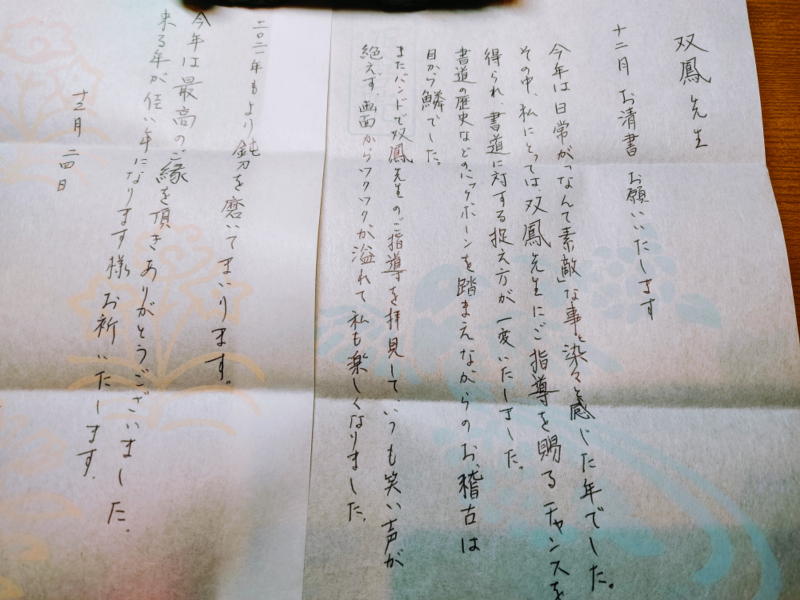 双鳳先生
十二月 お清書 お願いいたします
今年は日常が「なんて素敵」な事と染々と感じた年でした。
その中、私にとっては、双鳳先生にご指導を賜るチャンスを
得られ、書道に対する捉え方が一変いたしました。
書道の歴史などのバックボーンを踏まえながらのお稽古は
目から鱗でした。
またバンドで双鳳先生のご指導を拝見して、いつも笑い声が
絶えず、画面からワクワクが溢れて私も楽しくなりました。
二〇二一年もより鈍刀を磨いてまいります。
今年は最高のご縁を頂きありがとうございました。
来る年が佳い年になります様お祈いたします。
十二月 二四日